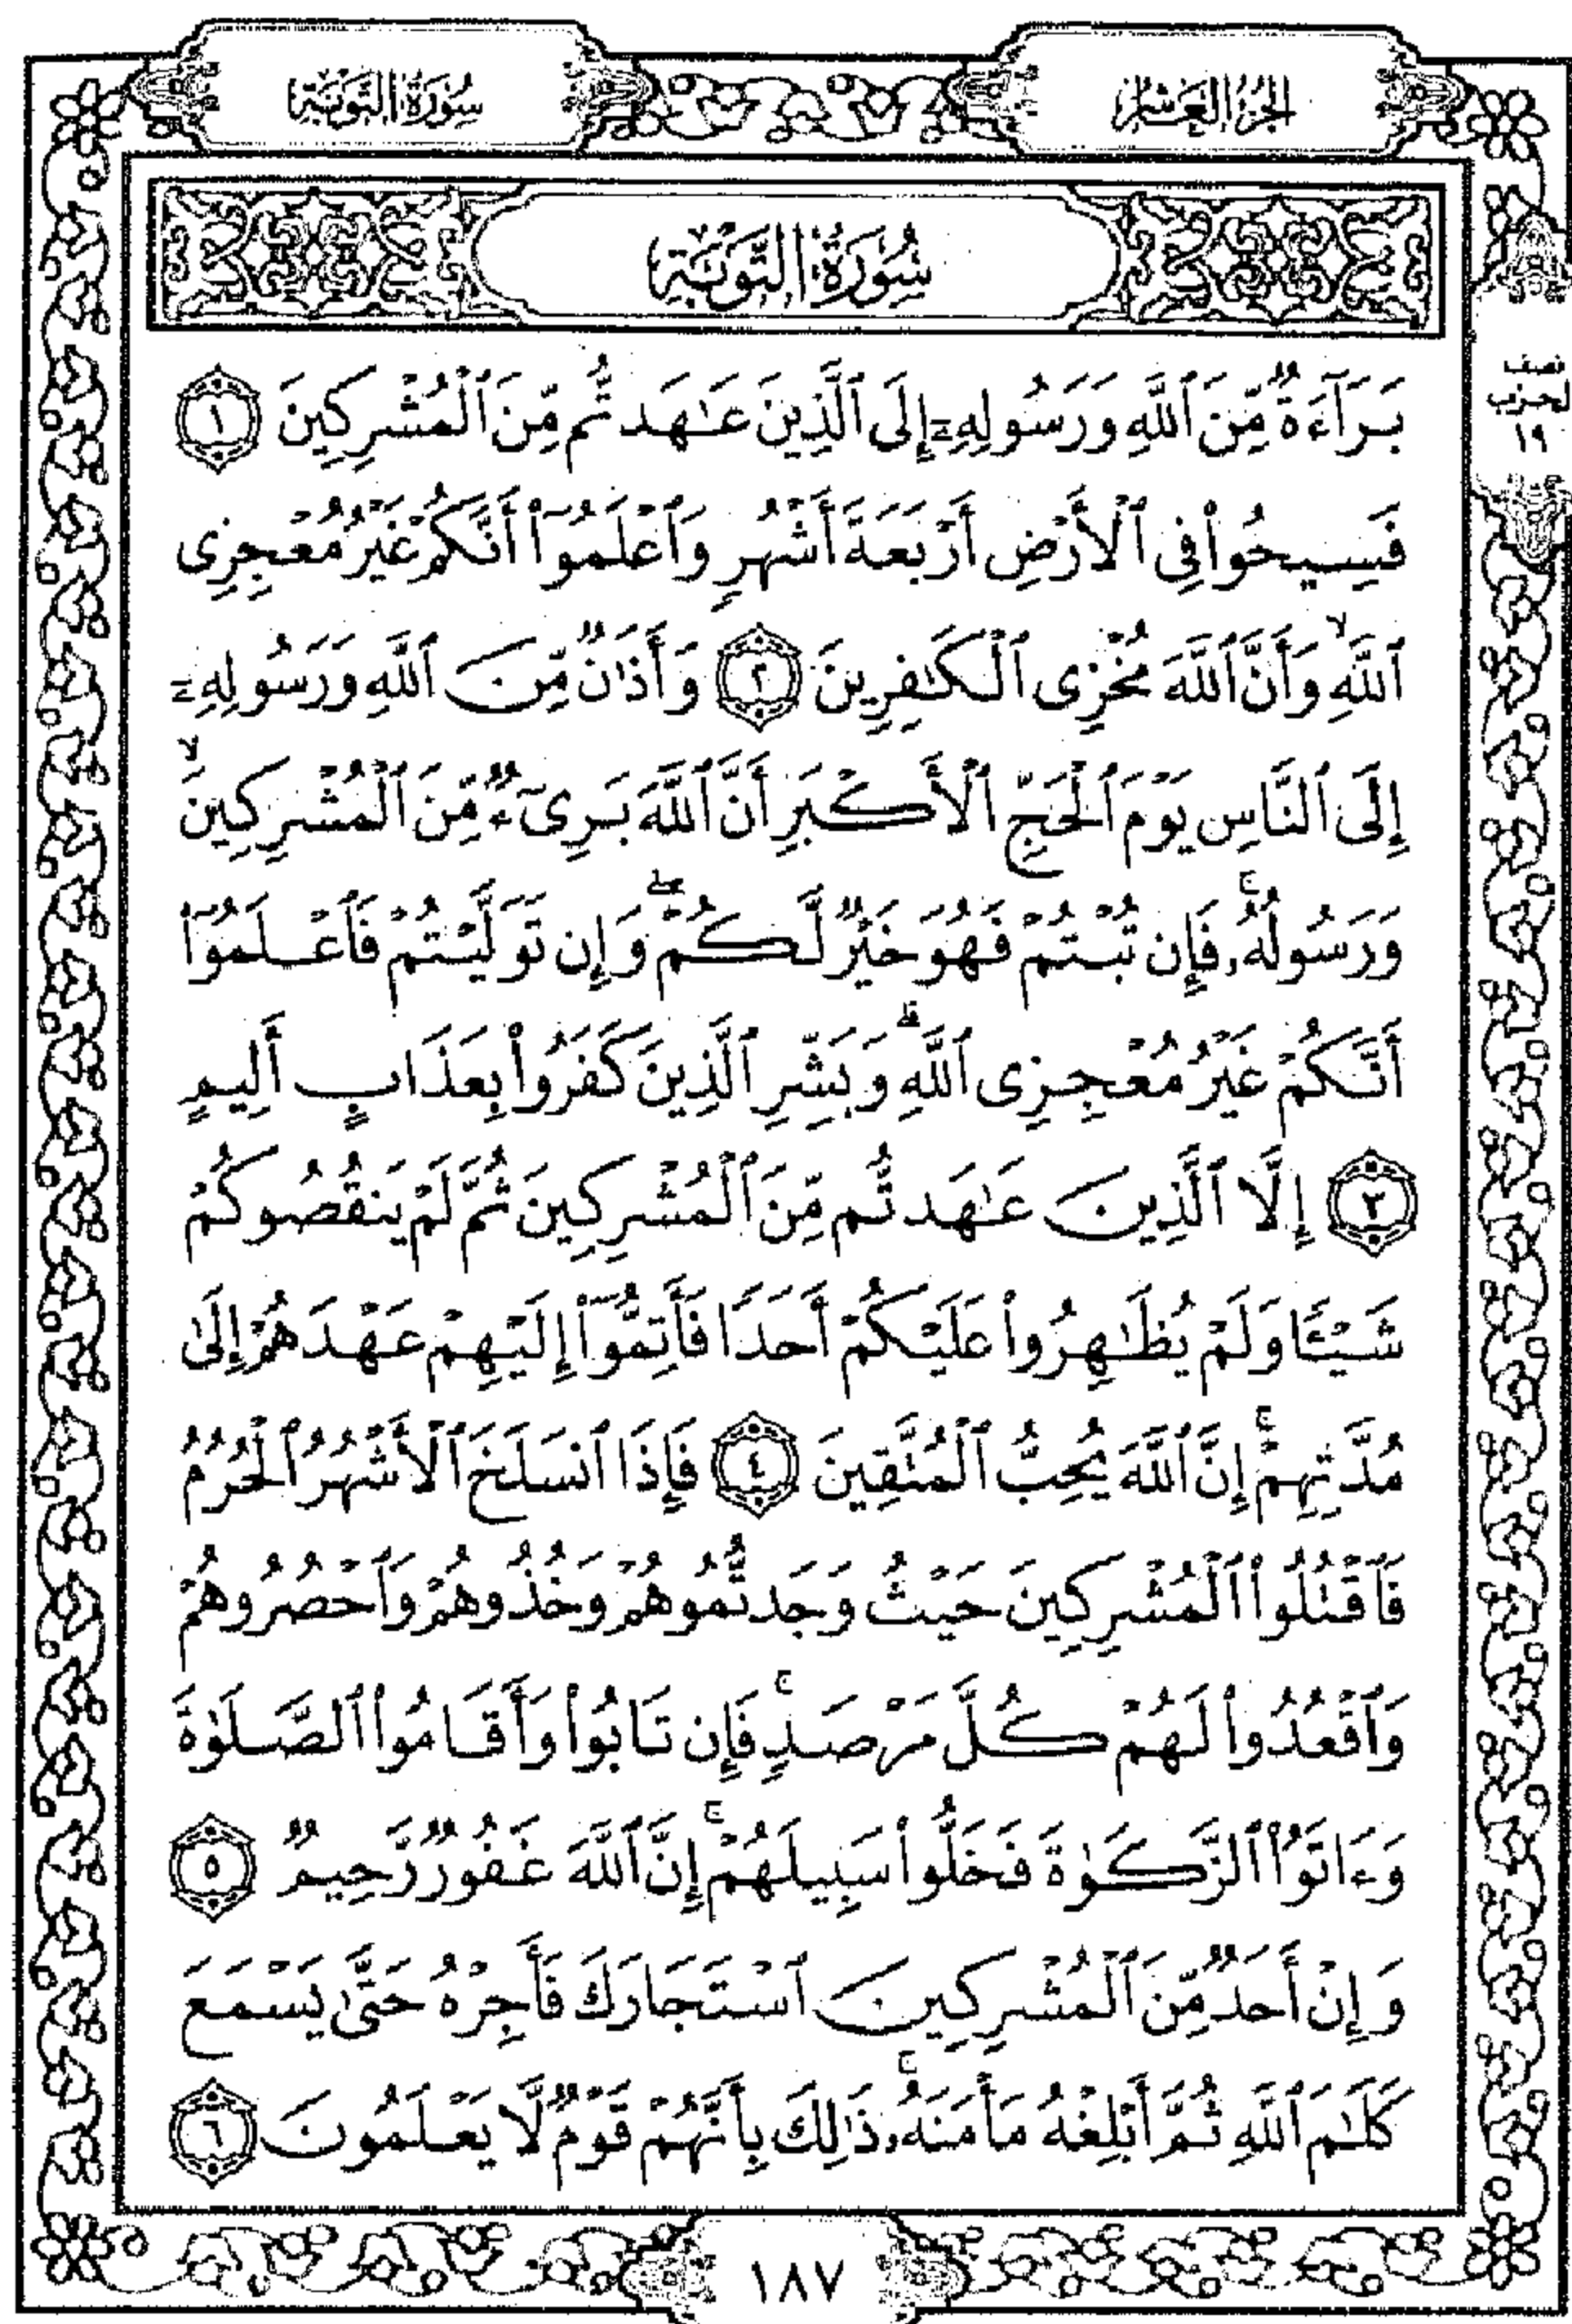 الجزء العاشر
سورة التوبة
سُورَةُ التَّوْبَةِ
بَرَآءَةٌ مِّنَ ٱللَّهِ وَرَسُولِهِۦٓ إِلَى ٱلَّذِينَ عَٰهَدتُّم مِّنَ ٱلْمُشْرِكِينَ ١
نصف
الحزب
١٩
فَسِيحُوا۟ فِى ٱلْأَرْضِ أَرْبَعَةَ أَشْهُرٍ وَٱعْلَمُوٓا۟ أَنَّكُمْ غَيْرُ مُعْجِزِى
ٱللَّهِ ۙ وَأَنَّ ٱللَّهَ مُخْزِى ٱلْكَٰفِرِينَ ٢ وَأَذَٰنٌ مِّنَ ٱللَّهِ وَرَسُولِهِۦٓ
إِلَى ٱلنَّاسِ يَوْمَ ٱلْحَجِّ ٱلْأَكْبَرِ أَنَّ ٱللَّهَ بَرِىٓءٌ مِّنَ ٱلْمُشْرِكِينَ ۙ
وَرَسُولُهُۥ ۚ فَإِن تُبْتُمْ فَهُوَ خَيْرٌ لَّكُمْ ۖ وَإِن تَوَلَّيْتُمْ فَٱعْلَمُوٓا۟
أَنَّكُمْ غَيْرُ مُعْجِزِى ٱللَّهِ ۗ وَبَشِّرِ ٱلَّذِينَ كَفَرُوا۟ بِعَذَابٍ أَلِيمٍ
٣ إِلَّا ٱلَّذِينَ عَٰهَدتُّم مِّنَ ٱلْمُشْرِكِينَ ثُمَّ لَمْ يَنقُصُوكُمْ
شَيْـًٔا وَلَمْ يُظَٰهِرُوا۟ عَلَيْكُمْ أَحَدًا فَأَتِمُّوٓا۟ إِلَيْهِمْ عَهْدَهُمْ إِلَىٰ
مُدَّتِهِمْ ۚ إِنَّ ٱللَّهَ يُحِبُّ ٱلْمُتَّقِينَ ٤ فَإِذَا ٱنسَلَخَ ٱلْأَشْهُرُ ٱلْحُرُمُ
فَٱقْتُلُوا۟ ٱلْمُشْرِكِينَ حَيْثُ وَجَدتُّمُوهُمْ وَخُذُوهُمْ وَٱحْصُرُوهُمْ
وَٱقْعُدُوا۟ لَهُمْ كُلَّ مَرْصَدٍ ۚ فَإِن تَابُوا۟ وَأَقَامُوا۟ ٱلصَّلَوٰةَ
وَءَاتَوُا۟ ٱلزَّكَوٰةَ فَخَلُّوا۟ سَبِيلَهُمْ ۚ إِنَّ ٱللَّهَ غَفُورٌ رَّحِيمٌ ٥
وَإِنْ أَحَدٌ مِّنَ ٱلْمُشْرِكِينَ ٱسْتَجَارَكَ فَأَجِرْهُ حَتَّىٰ يَسْمَعَ
كَلَٰمَ ٱللَّهِ ثُمَّ أَبْلِغْهُ مَأْمَنَهُۥ ۚ ذَٰلِكَ بِأَنَّهُمْ قَوْمٌ لَّا يَعْلَمُونَ ٦
١٨٧